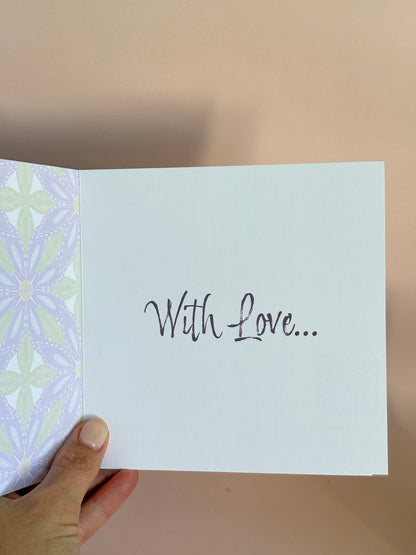 With Love...